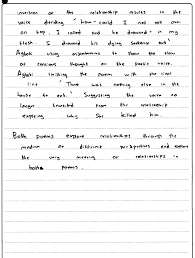 inversion of the relationship results in the
voice deciding "how could I not not own
an hop. I called and he drowned in my
flesh. I drowned his dying
Agbabi using to show the flow
of conscious thought on the poetic voice.
Agbabi finishing the poem with the final
line "There was nothing else in the
house to eat." Suggesting the voice no
longer benefited from the relationship
exploring why she killed him.
Both poems explore relationships through the
medium of different perspectives and explore
the very meaning of relationships in
both poems.